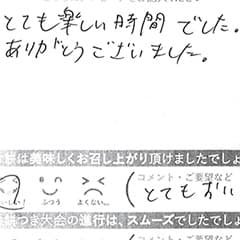 とても楽しい時間でした。
ありがとうございました。
餅は美味しくお召し上がり頂けましたでしょ
おいしい! ふつう よくない… コメント・ご要望など
とてもおい
餅つき大会の進行は、スムーズでしたでしょ
コメント・ご要望など